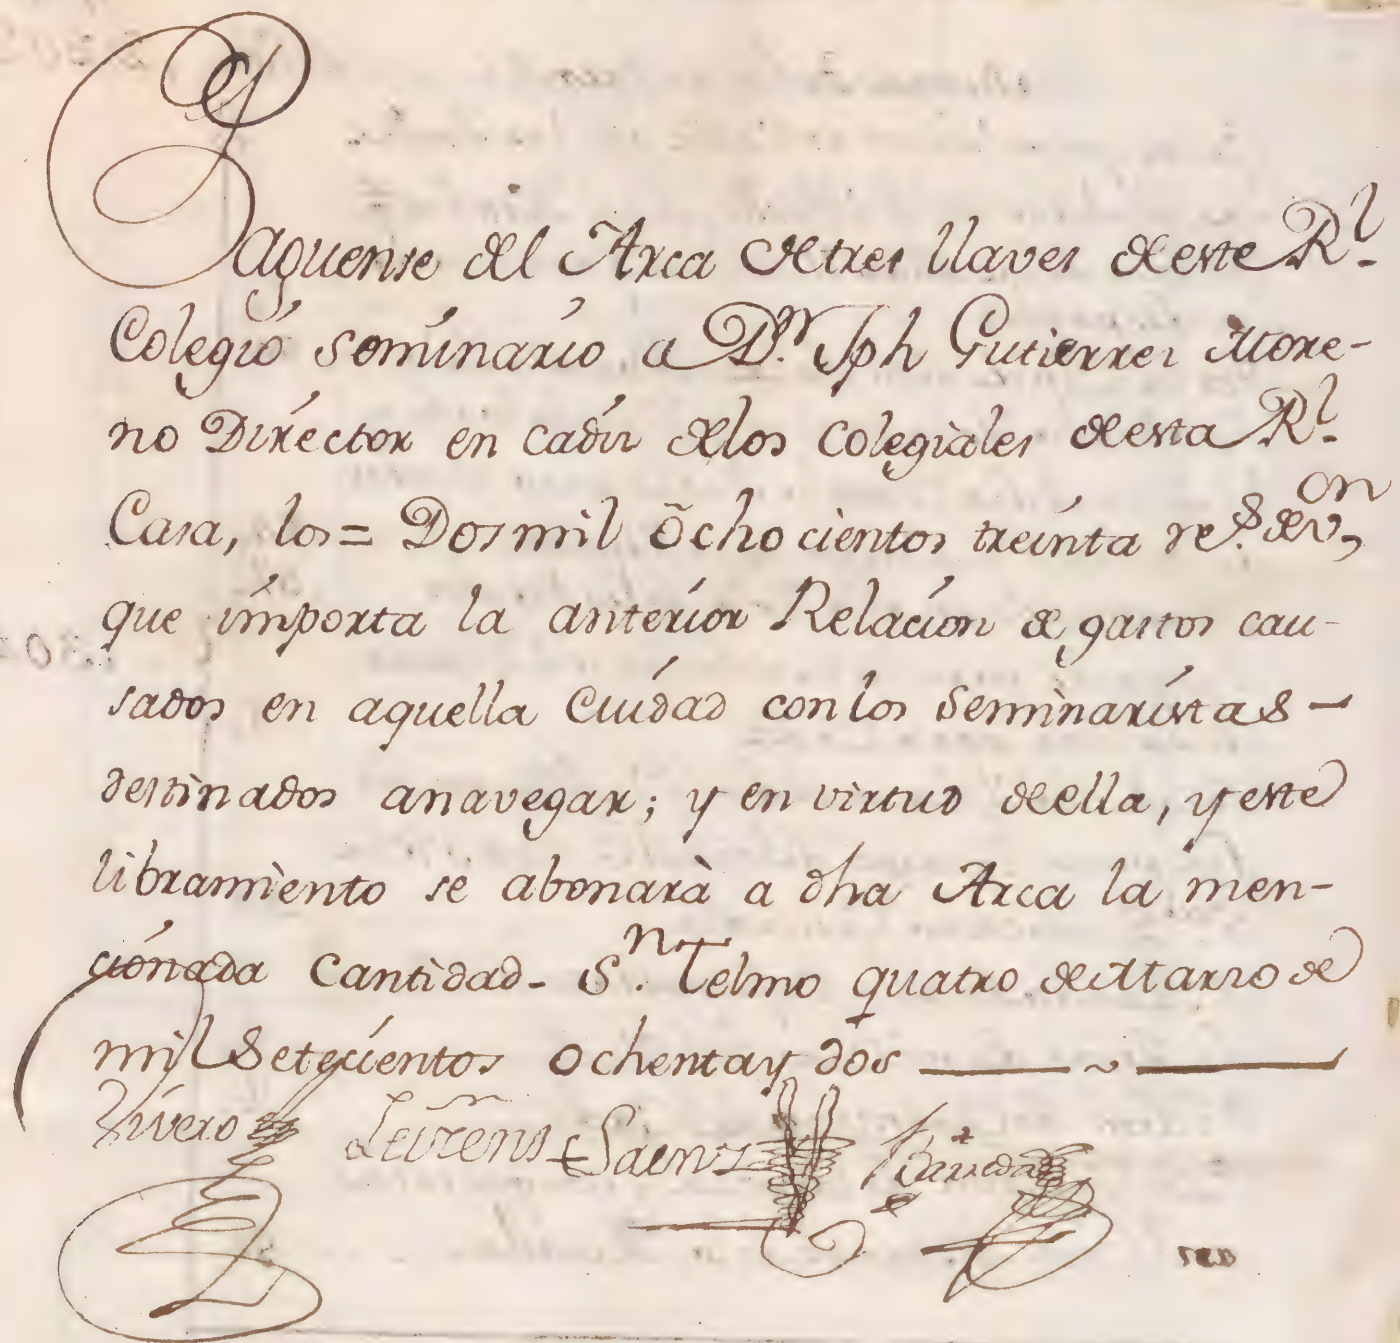 Saquense del Arca de tres llaves de este Rl.
Colegio seminario a Dn. Jph Gutierrez More-
no Director en Cadiz de los Colegiales de esta Rl.
Casa, los = Dos mil òchocientos treinta rs. de von,
que importa la anterior Relacion de gastos cau-
sados en aquella Ciudad con los Seminaristas -
destinados a navegar; y en virtud de ella, y este
libramiento se abonarà a dha Arca la men-
cionada Cantidad - Sn. Telmo quatro de Marzo de
mil Setecientos ochenta y dos ~
Vivero Saenz